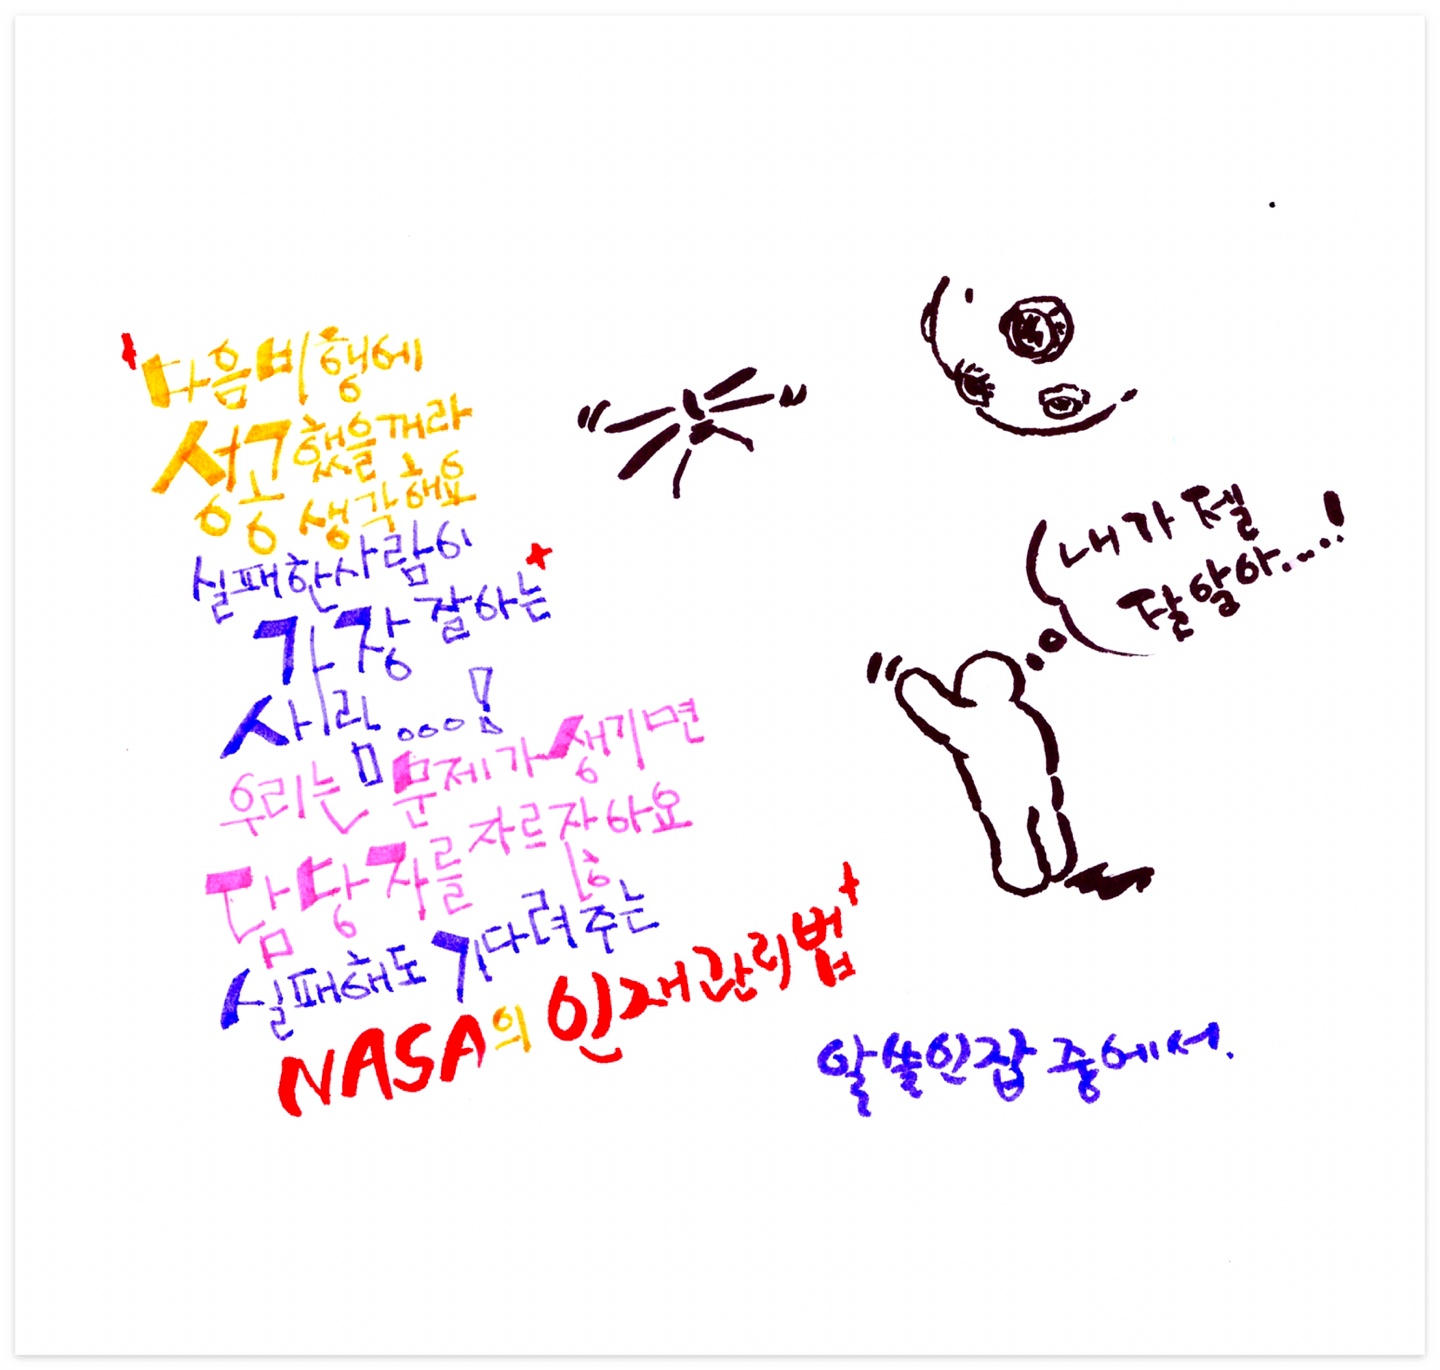 다음 비행에
성공했을꺼라
생각해요
실패한 사람이
가장 잘하는
사람...!
우리는 문제가 생기면
담당자를 자르잖아요
실패해도 기다려주는
NASA의 인재관리법
내가 젤
잘 알아....!
알쓸인잡 중에서.